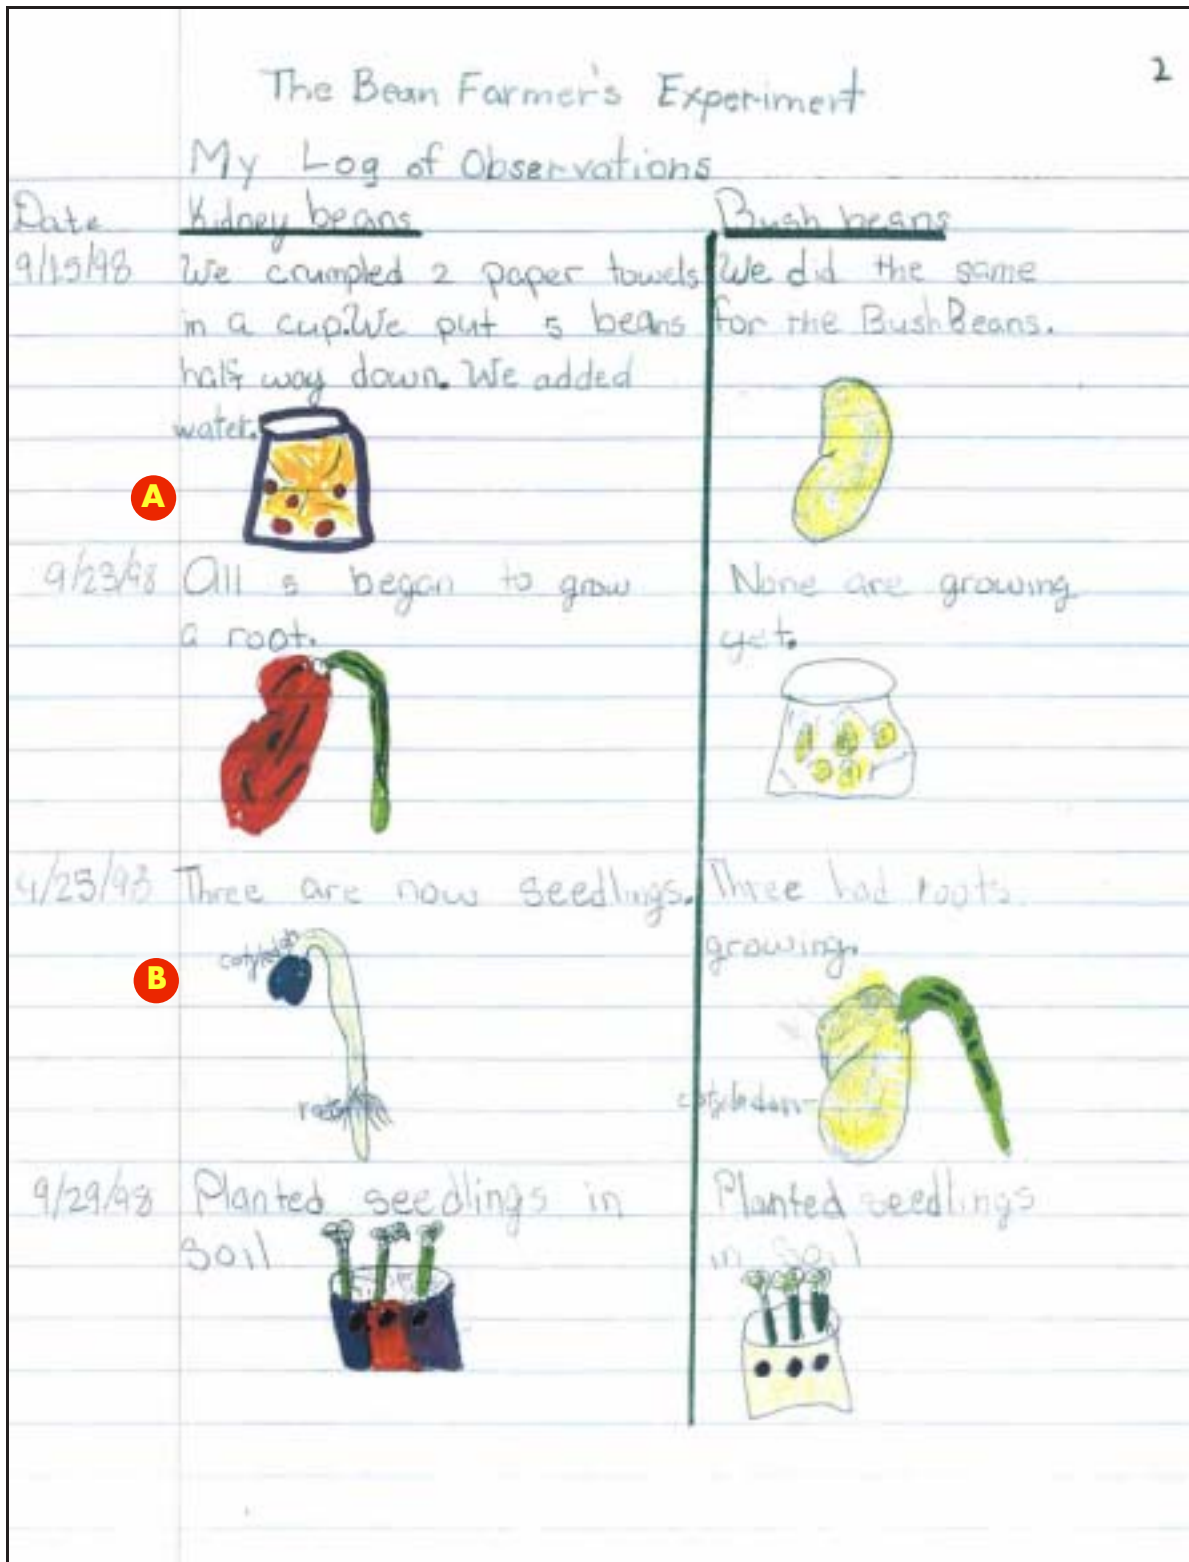 2
The Bean Farmer's Experiment
My Log of Observations
Date Kidney beans Bush beans
9/15/98 We crumpled 2 paper towels
in a cup. We put 5 beans
half way down. We added
water.
We did the same
for the Bush Beans.
A
9/23/98 All 5 began to grow
a root.
None are growing
yet.
9/25/98 Three are now seedlings.
Three had roots
growing.
cotyledon
B
roots
cotyledon
9/29/98 Planted seedlings in
soil
Planted seedlings
in soil